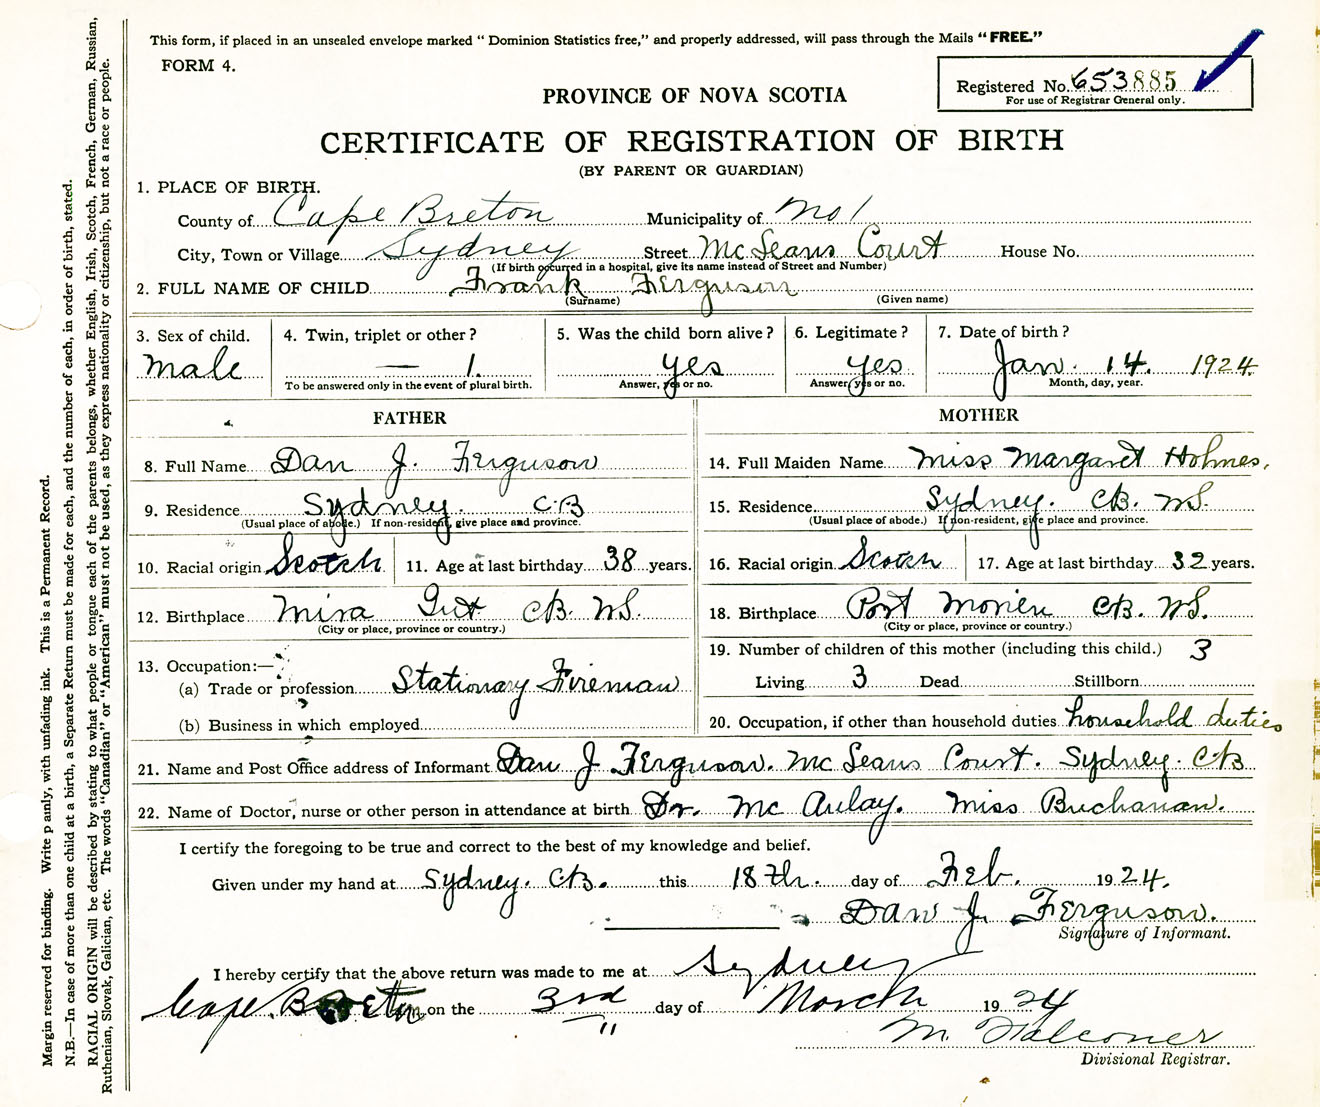 This form, if placed in an unsealed envelope marked " Dominion Statistics free," and properly addressed, will pass through the Mails "FREE."
FORM 4.
Registered No. 653885
For use of Registrar General only.
PROVINCE OF NOVA SCOTIA
CERTIFICATE OF REGISTRATION OF BIRTH
(BY PARENT OR GUARDIAN)
1. PLACE OF BIRTH.
County of Cape Breton Municipality of No 1
City, Town or Village Sydney Street McLeans Court House No.
(If birth occurred in a hospital, give its name instead of Street and Number)
2. FULL NAME OF CHILD Frank Ferguson
(Surname) (Given name)
3. Sex of child. 4. Twin, triplet or other? 5. Was the child born alive? 6. Legitimate? 7. Date of birth?
male — 1. yes yes Jan. 14. 1924
To be answered only in the event of plural birth. Answer, yes or no. Answer, yes or no. Month, day, year.
FATHER MOTHER
8. Full Name Dan J. Ferguson 14. Full Maiden Name Miss Margaret Holmes,
9. Residence Sydney. C.B 15. Residence Sydney. C.B. N.S.
(Usual place of abode.) If non-resident, give place and province. (Usual place of abode.) If non-resident, give place and province.
10. Racial origin Scotch 11. Age at last birthday 38 years. 16. Racial origin Scotch 17. Age at last birthday 32 years.
12. Birthplace Mira Gut C.B. N.S. 18. Birthplace Port Morien C.B. N.S.
(City or place, province or country.) (City or place, province or country.)
13. Occupation:— 19. Number of children of this mother (including this child.) 3
(a) Trade or profession Stationary Fireman Living 3 Dead Stillborn
(b) Business in which employed 20. Occupation, if other than household duties household duties
21. Name and Post Office address of Informant Dan J Ferguson. McLeans Court. Sydney. C.B
22. Name of Doctor, nurse or other person in attendance at birth Dr. McAulay. Miss Buchanan.
I certify the foregoing to be true and correct to the best of my knowledge and belief.
Given under my hand at Sydney. C.B. this 18th. day of Feb. 1924.
Dan J. Ferguson.
Signature of Informant.
I hereby certify that the above return was made to me at Sydney
Cape Breton on the 3rd day of March 1924
M. Falconer
Divisional Registrar.
Margin reserved for binding. Write p ainly, with unfading ink. This is a Permanent Record.
N.B.—In case of more than one child at a birth, a Separate Return must be made for each, and the number of each, in order of birth, stated.
RACIAL ORIGIN will be described by stating to what people or tongue each of the parents belongs, whether English, Irish, Scotch, French, German, Russian,
Ruthenian, Slovak, Galician, etc. The words "Canadian" or "American" must not be used, as they express nationality or citizenship, but not a race or people.